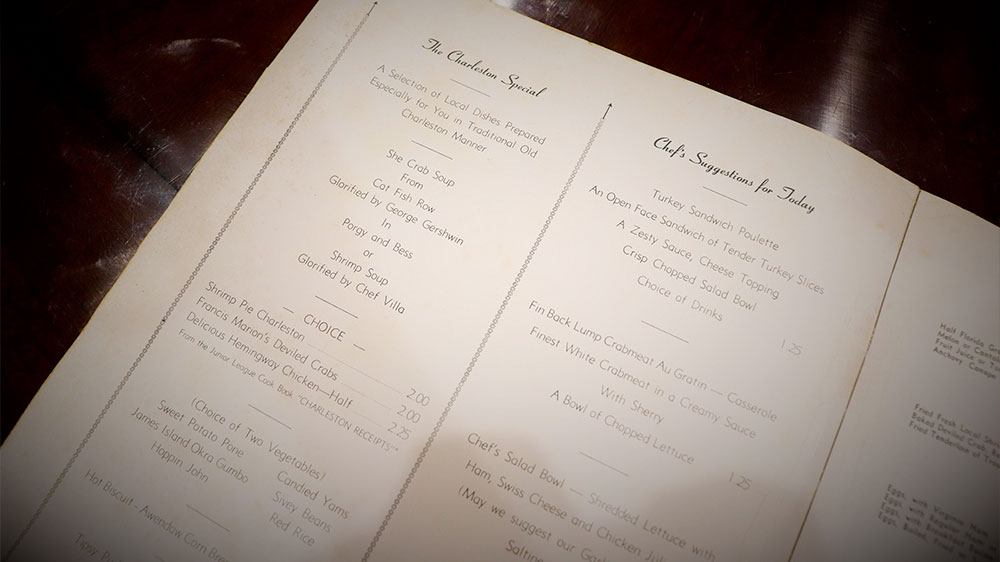 The Charleston Special
A Selection of Local Dishes Prepared
Especially for You in Traditional Old
Charleston Manner
She Crab Soup
From
Cat Fish Row
Glorified by George Gershwin
In
Porgy and Bess
or
Shrimp Soup
Glorified by Chef Villa
— CHOICE —
Shrimp Pie Charleston 2.00
Francis Marion's Deviled Crabs 2.00
Delicious Hemingway Chicken—Half 2.25
From the Junior League Cook Book "CHARLESTON RECEIPTS"
(Choice of Two Vegetables)
Sweet Potato Pone Candied Yams
James Island Okra Gumbo Sivey Beans
Hoppin John Red Rice
Hot Biscuit - Awendaw Corn Bre
Tipsy P
Chef's Suggestions for Today
Turkey Sandwich Poulette
An Open Face Sandwich of Tender Turkey Slices
A Zesty Sauce, Cheese Topping
Crisp Chopped Salad Bowl
Choice of Drinks
1.25
Fin Back Lump Crabmeat Au Gratin — Casserole
Finest White Crabmeat in a Creamy Sauce
With Sherry
A Bowl of Chopped Lettuce
1.25
Chef's Salad Bowl — Shredded Lettuce with
Ham, Swiss Cheese and Chicken Jul
(May we suggest our Garl
Saltine
Half Florida G
Melon or Canta
Fruit Juice or To
Anchovy Canape
Fried Fresh Local Sh
Baked Deviled Crab, Re
Fried Tenderloin of Tro
Eggs, with Virginia Ham
Eggs, with Regular Ham
Eggs, with Breakfast Bacon
Eggs, Boiled, Fried or